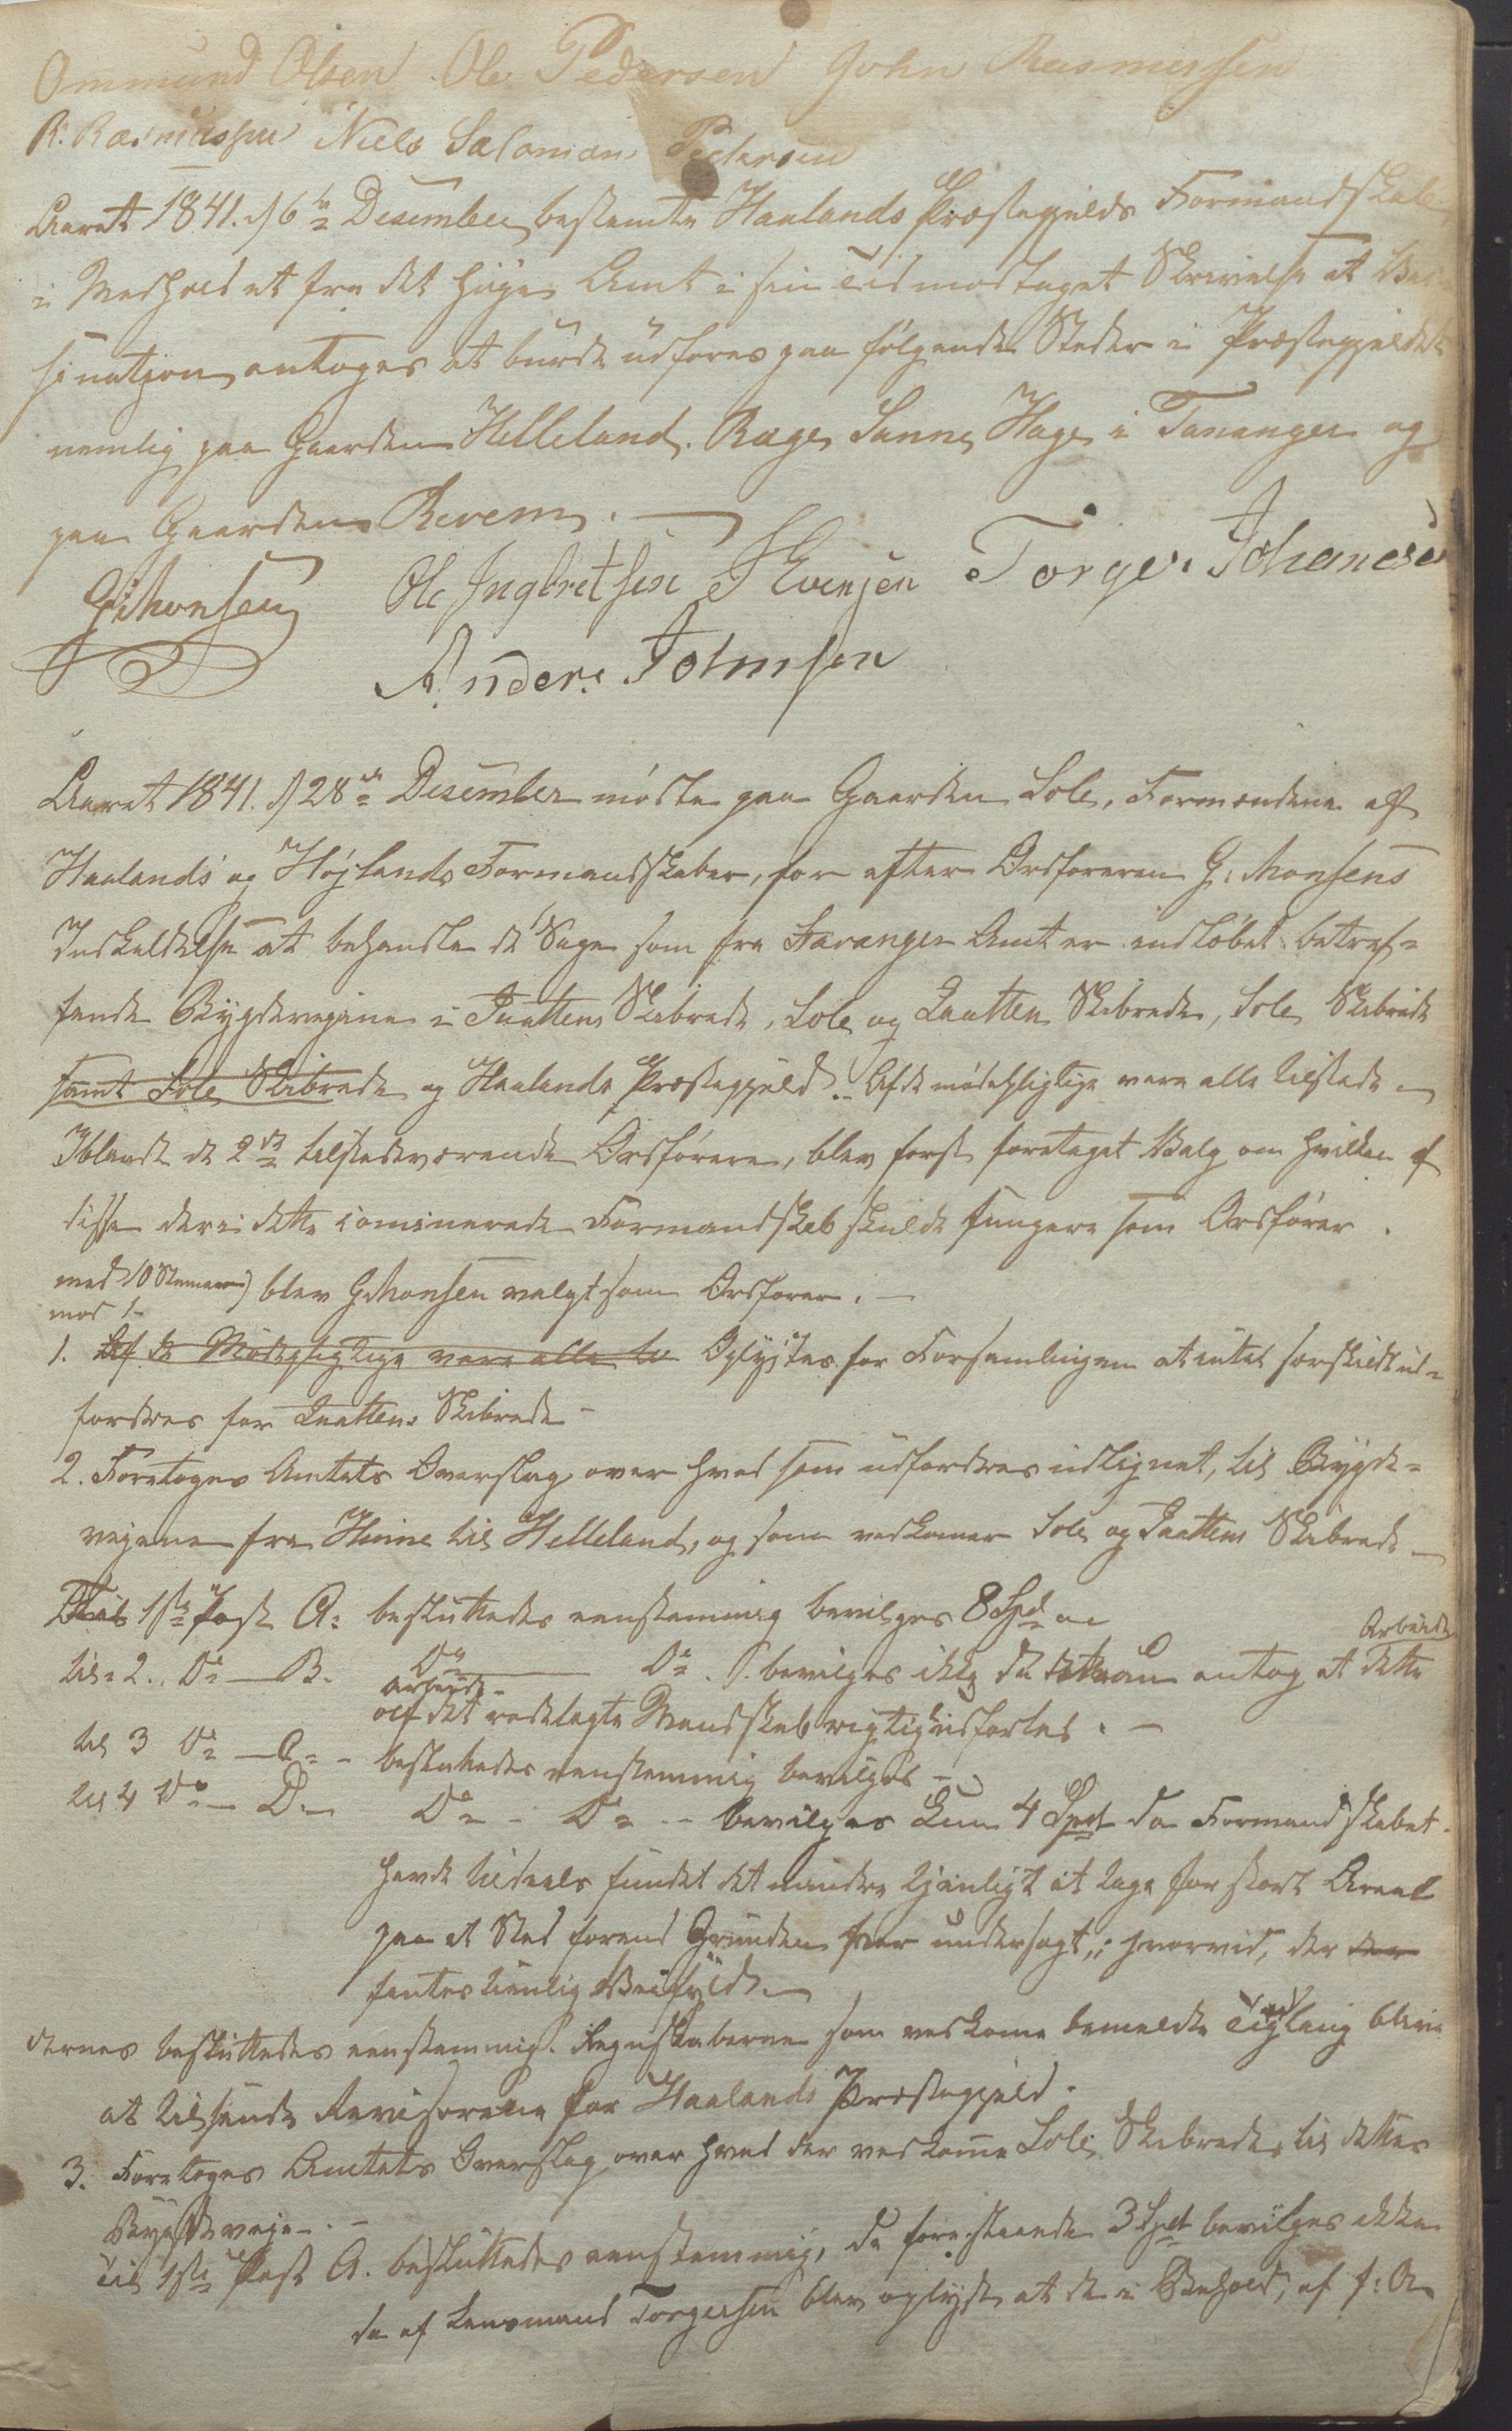 Ommund Olsen Ole Pedersen John Rasmussen
R. Rasmussen Niels Salomon Pedersen
Aaret 1841. d 6te Desember bestemte Haalands Præstegjelds Formandskab
i Medhold at fra det høye Amt i sin Tid modtaget Skrivelse at Vac-
sination antoges at burde udføres paa følgende Steder i Præstegjeldet
nemlig paa Gaarden Helleland. Rage, Sunne, Hage i Tananger og
paa Gaarden Revem.
GMonsen Ole Ingbretsen T Evensen Torger Johanesen
Anders Johnsen
Aaret 1841. d 28de Desember mødte paa Gaarden Sole, Formændene af
Haalands og Højlands Formandskaber, for efter Ordføreren G. Monsens
Indkaldelse at behandle de Sager som fra Stavanger Amt er indløbet betref-
fende Bygdeveiene i Jaattens Skibrede, Sole og Jaatten Skibrede, Sole Skibrede
samt Sole Skibrede og Haalands Præstegjeld. Af de mødepligtige vare alle tilstede
Iblandt de 2de tilstedeværende Ordførere, blev først foretaget Valg om hvilken af
disse der i dette cominerede Formandskab skulde fungere som Ordfører.
med 10 Stemmer) blev GMonsen valgt som Ordfører.
mod 1
1. Af de Mødepligtige vare alle til Oplystes for Forsamlingen at intet særskildt ud-
fordres for Jaattens Skibrede
2. Foretoges Amtets Overslag over hvad som udfordres udlignet, til Bygde-
veiene fra Hinne til Helleland, og som vedkomer Sole og Jaattens Skibrede
Til 1ste Post A: besluttedes eenstemmig bevilges 8 Spd
til 2. Do B. Do Do bevilges ikke da man antog at dette Arbeide
af det rodelagte Mandskab rigtig udførtes.
til 3 Do C besluttedes eenstemmig bevilges
til 4 Do D. Do Do bevilges kun 4 Spd da Formandskabet
havde tildeels fundet det mindre tjenligt at tage for stort Areal
paa et Sted forend Grunden var undersøgt, hvorvid, der der
fantes tienlig Veifyld.
dernes besluttedes eenstemmig. Regnskaberne som vedkome bemeldte blive
at tilsende Revisorerne for Haalands Præstegjeld.
3. Foretoges Amtets Overslag over hvad der vedkome Sole Skibrede, til dettes
Bygdeveje.
Til 1ste Post A. besluttedes eenstemmig, de forestaaende 3 Spd bevilges ikke
da af Lensmand Torgersen blev oplyst at de i Behold, af f: A